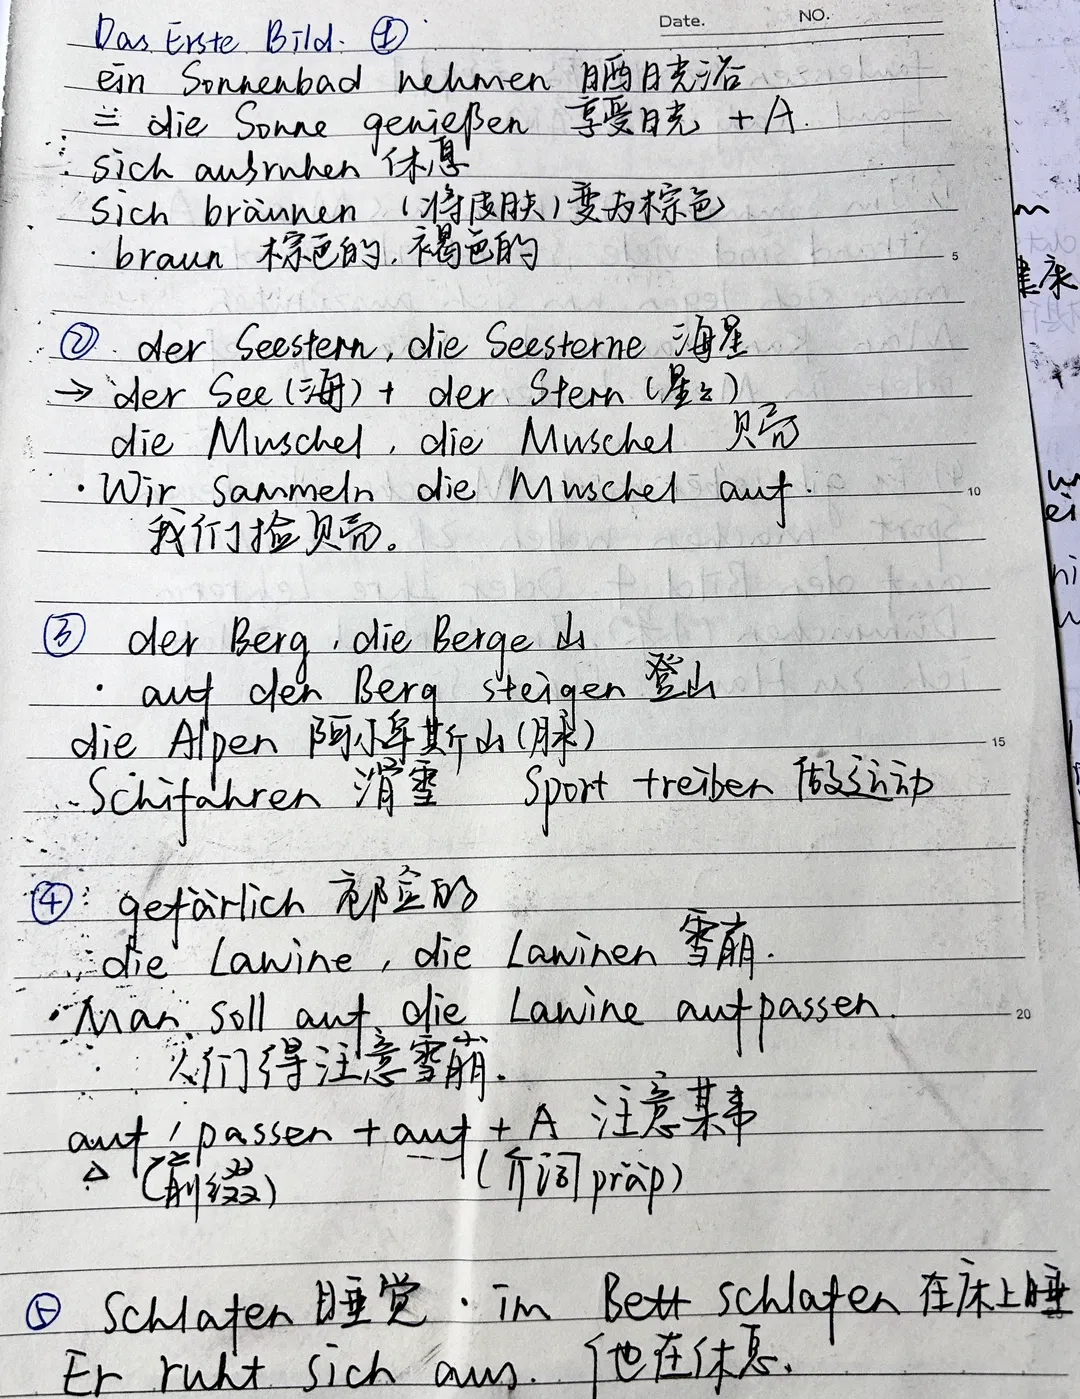 Date. NO.
Das Erste Bild. ①
ein Sonnenbad nehmen 日晒日光浴
= die Sonne genießen 享受日光 + A.
sich ausruhen 休息
sich bräunen (将皮肤)变为棕色
· braun 棕色的, 褐色的
5
② der Seestern, die Seesterne 海星
→ der See (海) + der Stern (星云)
die Muschel, die Muschel 贝壳
· Wir sammeln die Muschel auf.
10
我们捡贝壳。
③ der Berg, die Berge 山
· auf den Berg steigen 登山
die Alpen 阿尔卑斯山(脉)
15
Schifahren 滑雪 Sport treiben 做运动
④ gefärlich 危险的
die Lawine, die Lawinen 雪崩.
· Man soll auf die Lawine aufpassen.
20
人们得注意雪崩.
auf / passen + auf + A 注意某事
(前缀) (介词 präp)
⑤ Schlafen 睡觉 · im Bett schlafen 在床上睡
Er ruht sich aus. 他在休息.